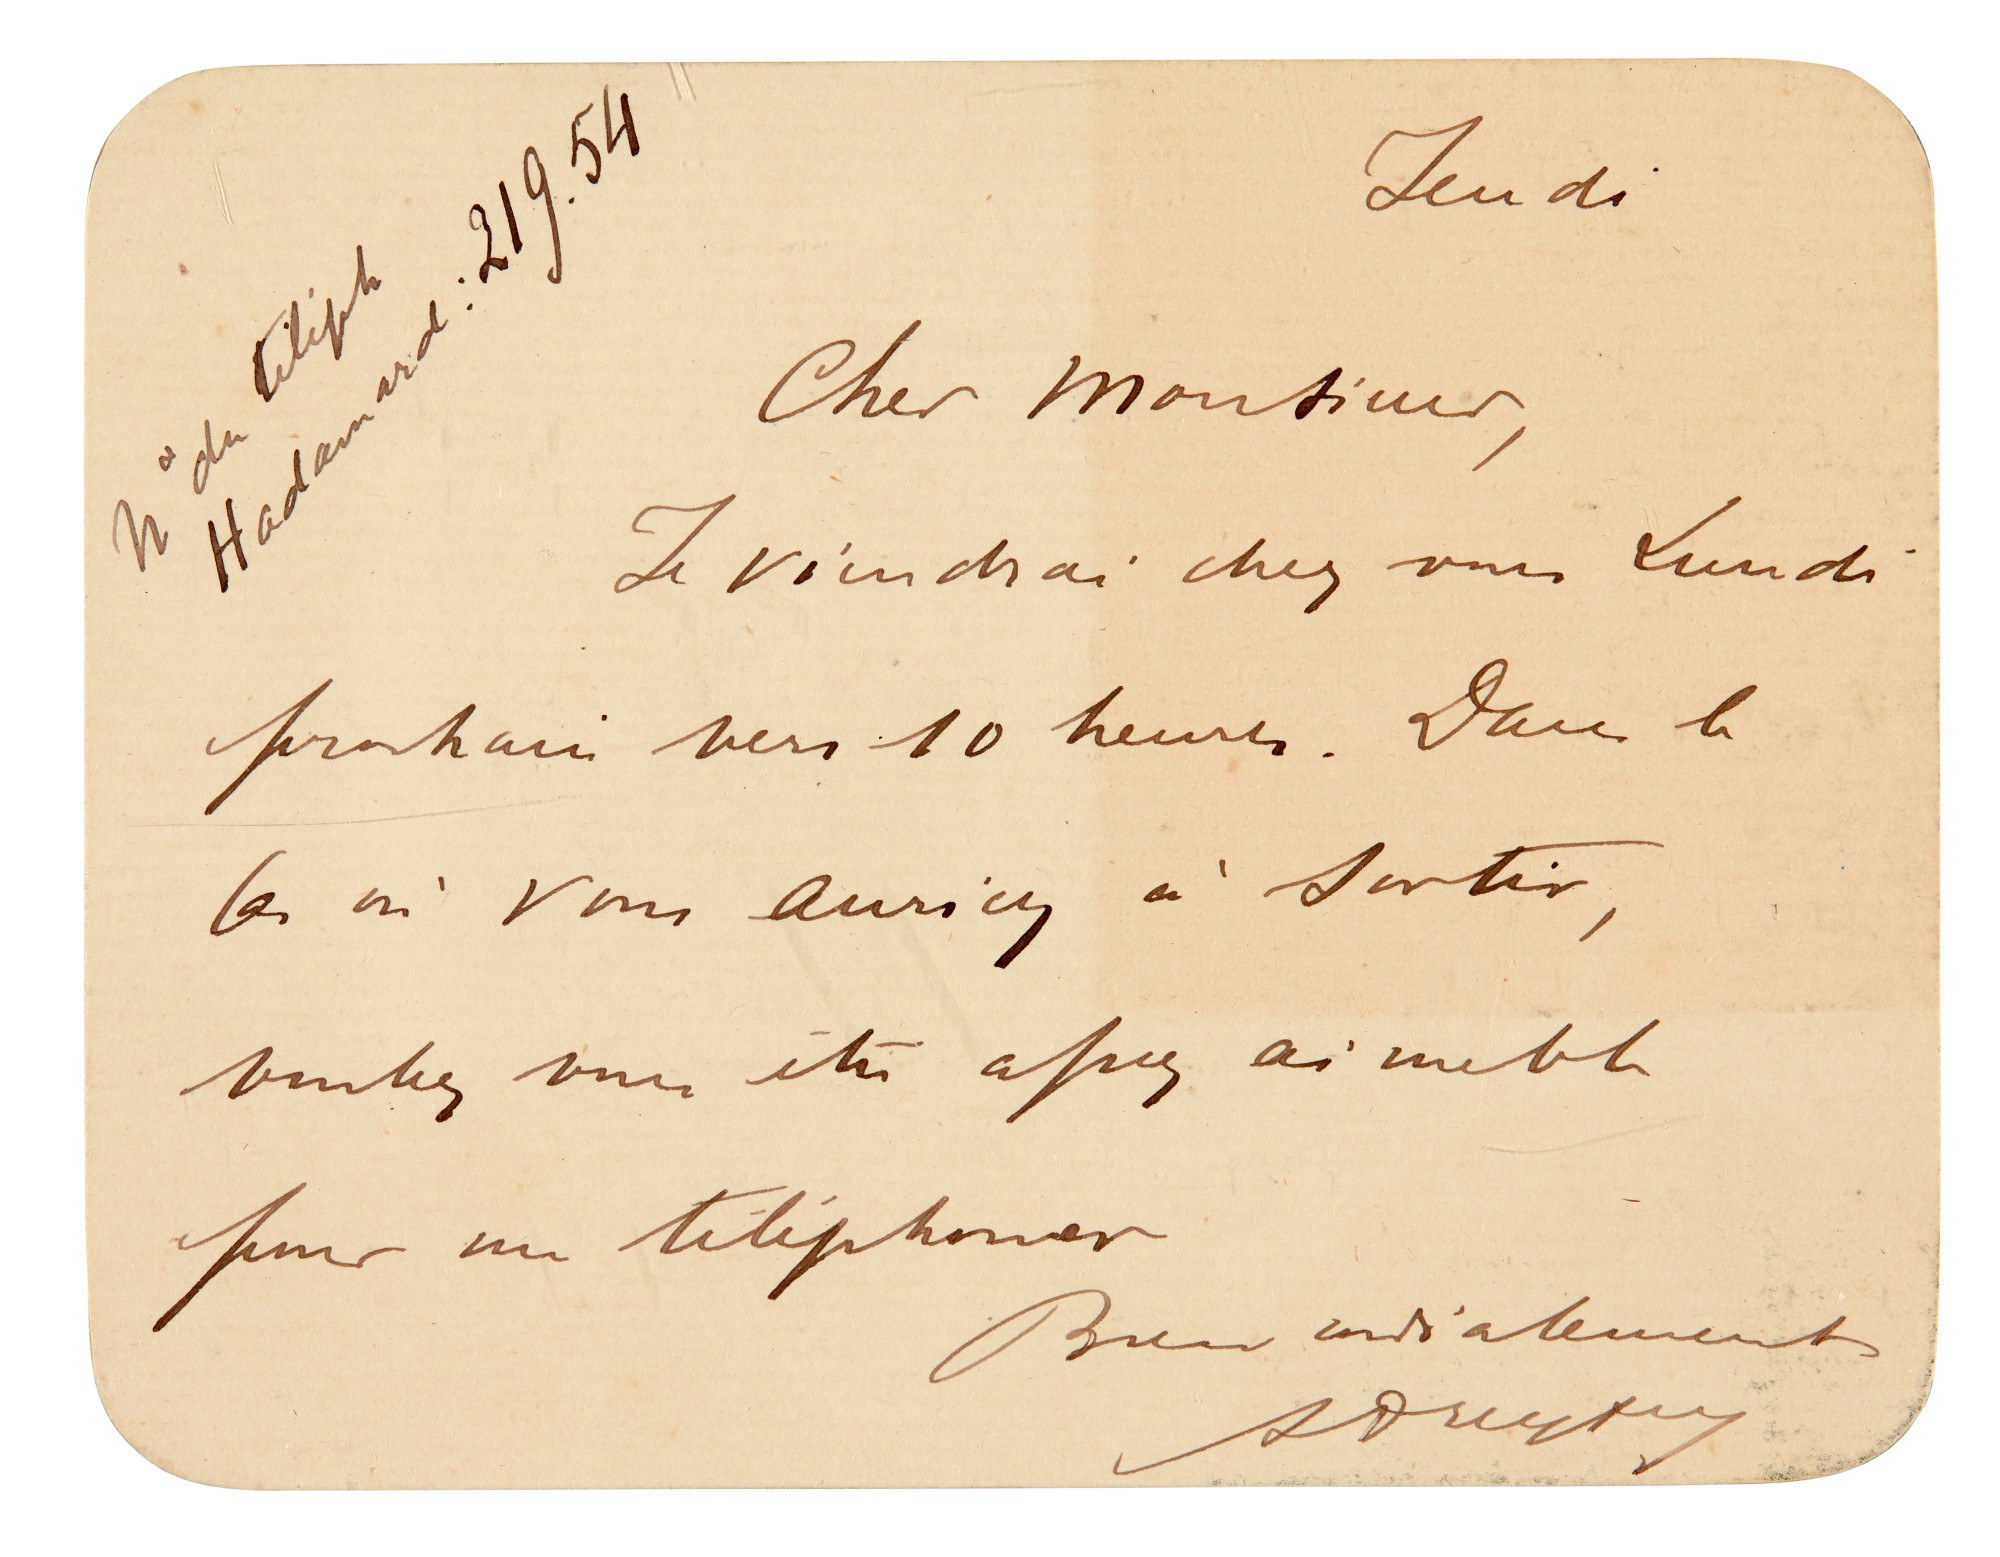 N° du téléph
Hadamard : 219.54
Jeudi
Cher Monsieur,
Je viendrai chez vous Lundi
prochain vers 10 heures. Dans le
cas où vous auriez à sortir,
voulez vous être assez aimable
pour me téléphoner
Bien cordialement
A Dreyfus